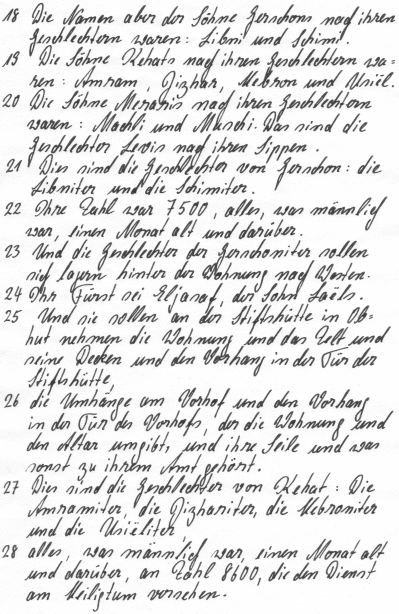 18 Die Namen aber der Söhne Gerschons nach ihren
Geschlechtern waren: Libni und Schimi.
19 Die Söhne Kehats nach ihren Geschlechtern wa-
ren: Amram, Jizhar, Hebron und Usiël.
20 Die Söhne Meraris nach ihren Geschlechtern
waren: Machli und Muschi. Das sind die
Geschlechter Levis nach ihren Sippen.
21 Dies sind die Geschlechter von Gerschon: die
Libniter und die Schimiter.
22 Ihre Zahl war 7500, alles, was männlich
war, einen Monat alt und darüber.
23 Und die Geschlechter der Gerschoniter sollen
sich lagern hinter der Wohnung nach Westen.
24 Ihr Fürst sei Eljasaf, der Sohn Laëls.
25 Und sie sollen an der Stiftshütte in Ob-
hut nehmen die Wohnung und das Zelt und
seine Decken und den Vorhang in der Tür der
Stiftshütte,
26 die Umhänge am Vorhof und den Vorhang
in der Tür des Vorhofs, der die Wohnung und
den Altar umgibt, und ihre Seile und was
sonst zu ihrem Amt gehört.
27 Dies sind die Geschlechter von Kehat: Die
Amramiter, die Jizhariter, die Hebroniter
und die Usiëliter,
28 alles, was männlich war, einen Monat alt
und darüber, an Zahl 8600, die den Dienst
am Heiligtum versehen.